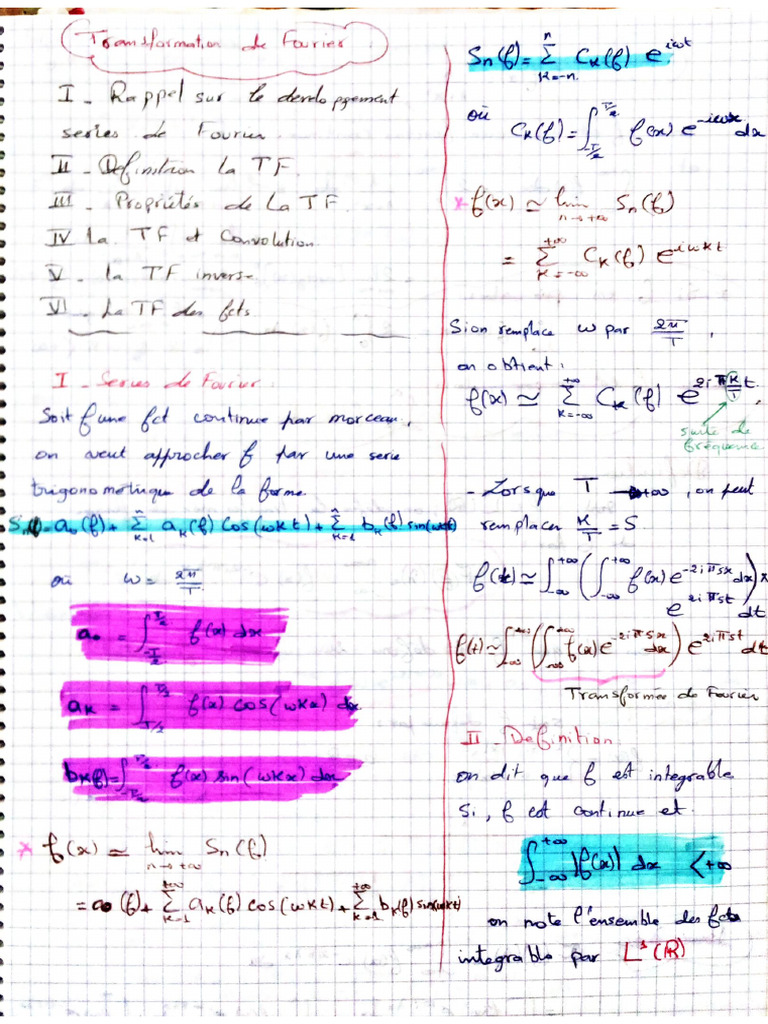 Transformation de Fourier.
I - Rappel sur le developpement
series de Fourier.
II - Definition La TF.
III - Propriétés de La TF.
IV La TF et Convolution.
V - la TF inverse
VI - La TF des fcts
I - Series de Fourier.
Soit f une fct continue par morceau,
on veut approcher f par une serie
trigonometrique de la forme.
Sn(f) = a₀(f) + Σ_{k=1}^{n} a_k(f) cos(wkt) + Σ_{k=1}^{n} b_k(f) sin(wkt)
où w = 2π/T
a₀ = ∫_{-T/2}^{T/2} f(x) dx
a_k = ∫_{T/2}^{T/2} f(x) cos(wkx) dx
b_k(f) = ∫_{-T/2}^{T/2} f(x) sin(wkx) dx
* f(x) ≃ lim_{n→+∞} Sn(f)
= a₀(f) + Σ_{k=1}^{+∞} a_k(f) cos(wkt) + Σ_{k=1}^{+∞} b_k(f) sin(wkt)
Sn(f) = Σ_{k=-n}^{n} C_k(f) e^{iwt}
où
C_k(f) = ∫_{-T/2}^{T/2} f(x) e^{-iwx} dx
* f(x) ≃ lim_{n→+∞} Sn(f)
= Σ_{k=-∞}^{+∞} C_k(f) e^{iwkt}
Si on remplace w par 2π/T,
on obtient:
f(x) ≃ Σ_{k=-∞}^{+∞} C_k(f) e^{2iπ k/T t},
suite de
fréquence
- Lorsque T → +∞, on peut
remplacer k/T = S
f(t) ≃ ∫_{-∞}^{+∞} (∫_{-∞}^{+∞} f(x) e^{-2iπsx} dx) x
e^{2iπst} dt
f(t) ≃ ∫_{-∞}^{+∞} (∫_{-∞}^{+∞} f(x) e^{-2iπsx} dx) e^{2iπst} dt
Transformée de Fourier
II - Definition
on dit que f est integrable
si, f est continue et
∫_{-∞}^{+∞} |f(x)| dx < +∞
on note l'ensemble des fcts
integrable par L¹(R)